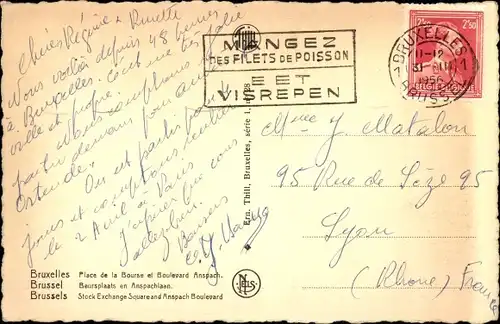 Chères Régine & Ninette
Nous voilà depuis 48 heures
à Bruxelles. C'est une très jolie
ville et propre.
Nous comptons
partir demain pour
Ostende.
On est parti pour
jours et comptons rentrer
le 2 Avril à Paris
J'espère que vous
allez bien.
Baisers
MANGEZ
DES FILETS DE POISSON
EET
VISREPEN
BRUXELLES
11-12
1956
BRUSSEL
2F50
2F50
BELGIE-BELGIQUE
Mme Y Matalon
95 Rue de Sèze 95
Lyon
(Rhône) France
Ern. Thill, Bruxelles, série 1, no 28
Bruxelles Place de la Bourse et Boulevard Anspach.
Brussel Beursplaats en Anspachlaan.
Brussels Stock Exchange Square and Anspach Boulevard
NELS